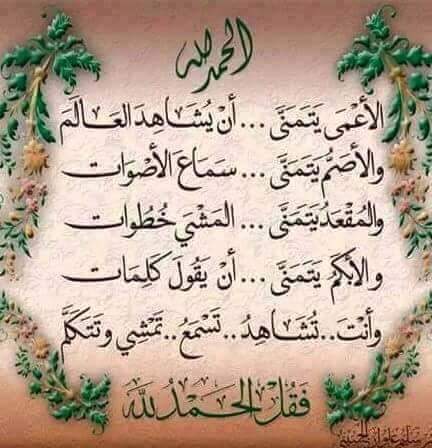 الحمد لله
الأَعْمَى يَتَمَنَّى ... أنْ يُشَاهِدَ العَالَمَ
والأصَمُّ يتَمَنَّى ... سَمَاعَ الأصْوَات
والمُقْعَدُ يَتَمَنَّى ... المَشْيَ خُطُوَات
والأبْكَمُ يَتَمَنَّى ... أنْ يَقُولَ كَلِمَات
وأنْتَ .. تُشَاهِدُ .. تَسْمَعُ .. تَمْشِي وتَتَكَلَّم
فَقُلْ الحَمْدُ لِلَّه